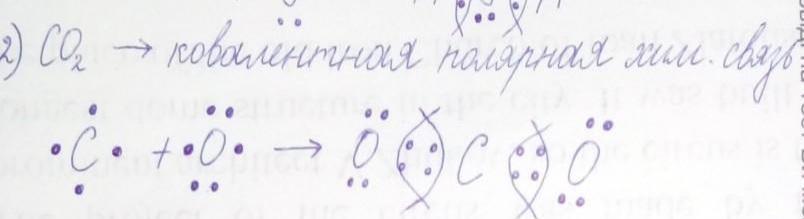 2) CO₂ → ковалентная полярная хим. связь
·C· + ·O· → O :: C :: O